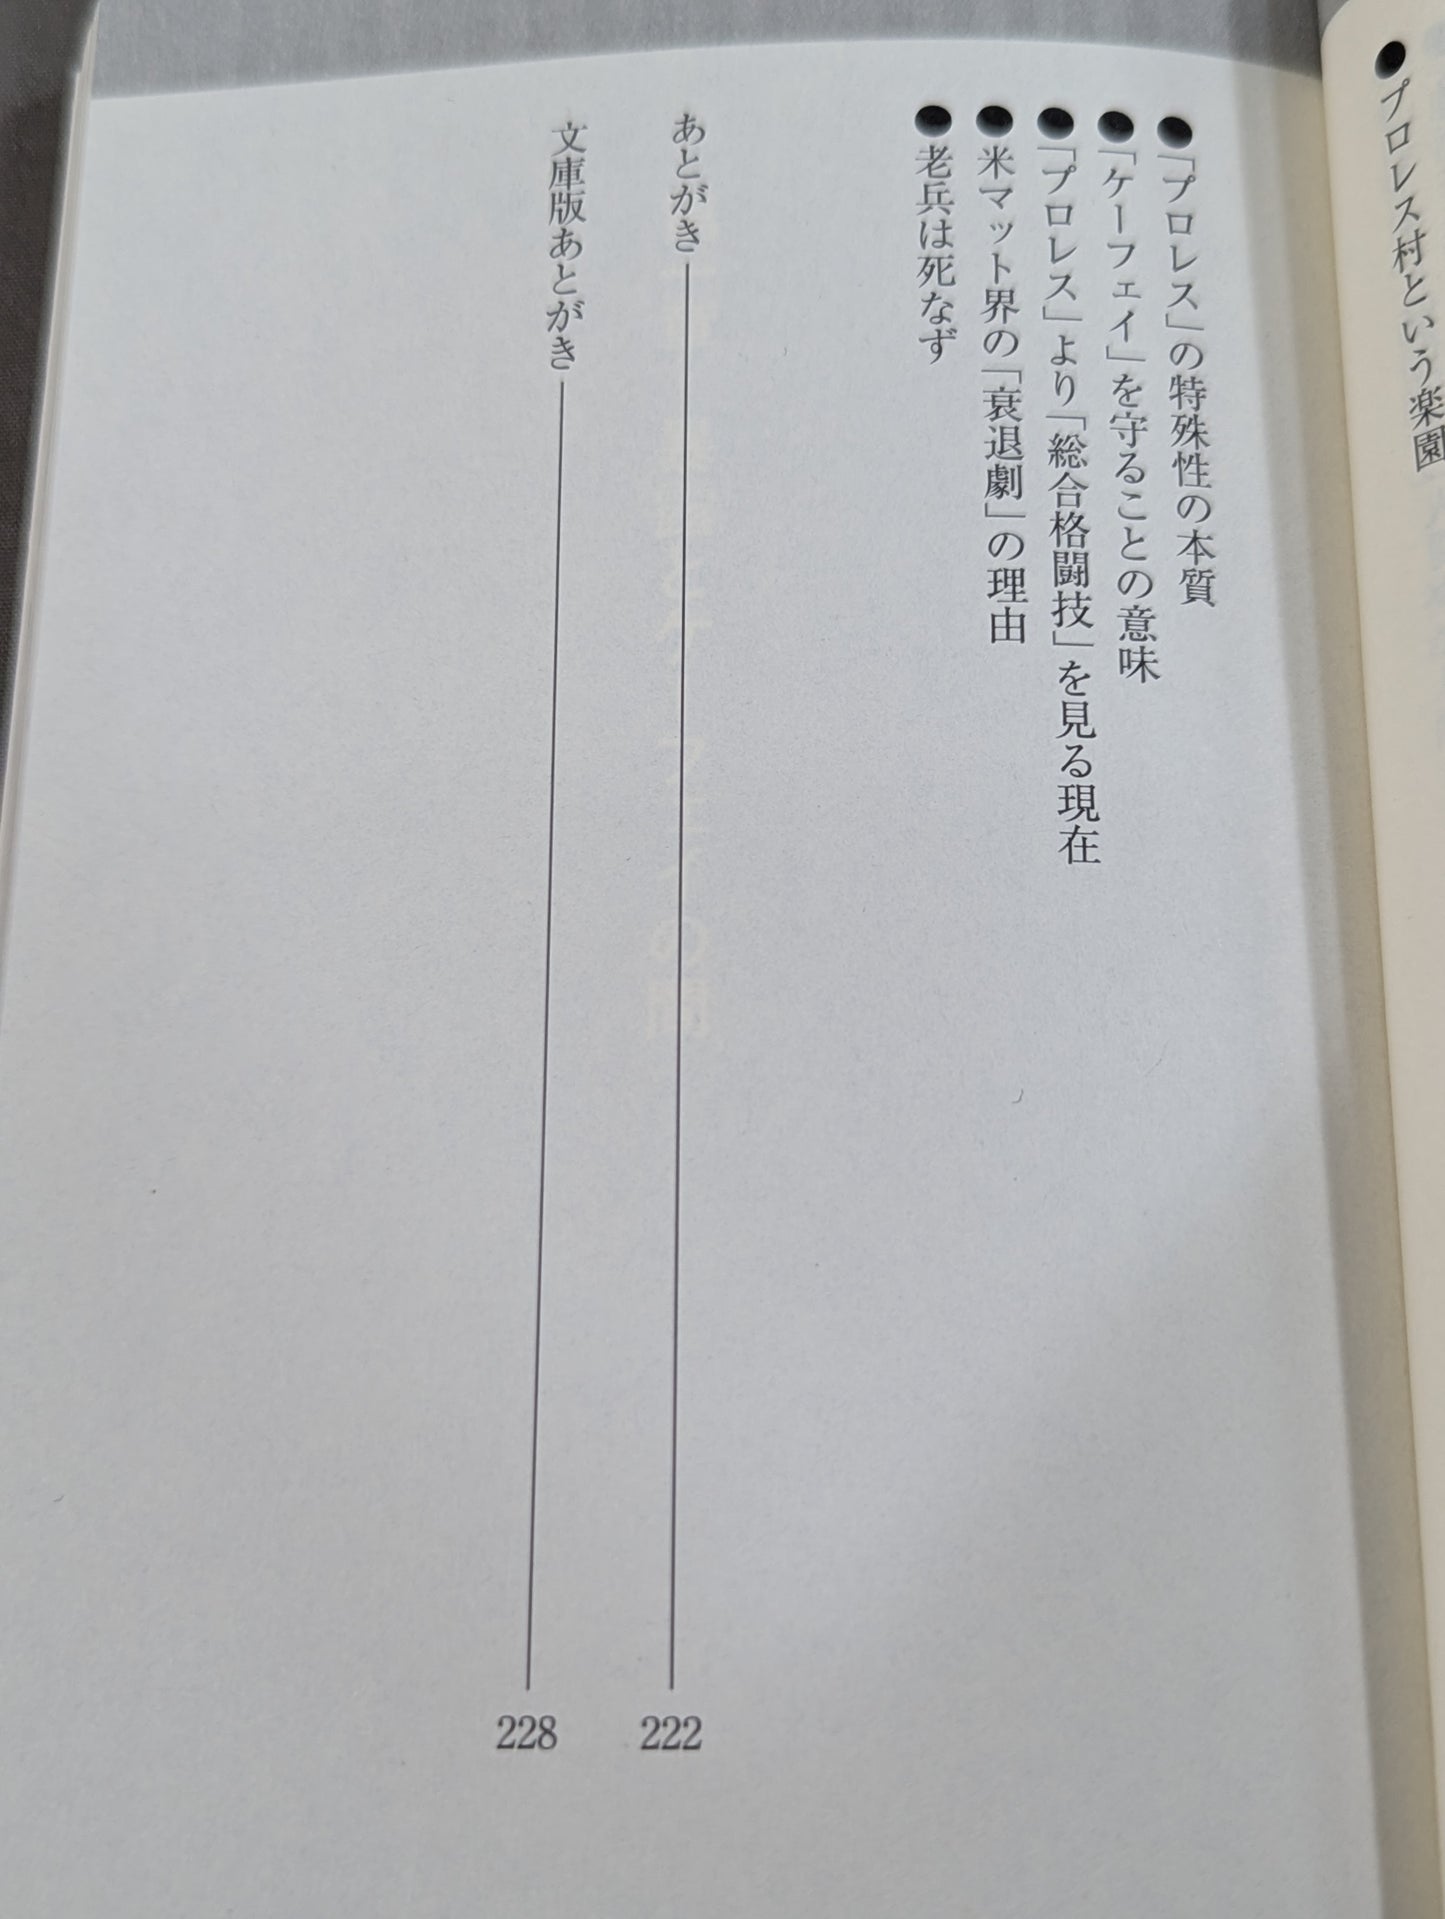 ●プロレス村という楽園
●「プロレス」の特殊性の本質
●「ケーフェイ」を守ることの意味
●「プロレス」より「総合格闘技」を見る現在
●米マット界の「衰退劇」の理由
●老兵は死なず
あとがき 222
文庫版あとがき 228